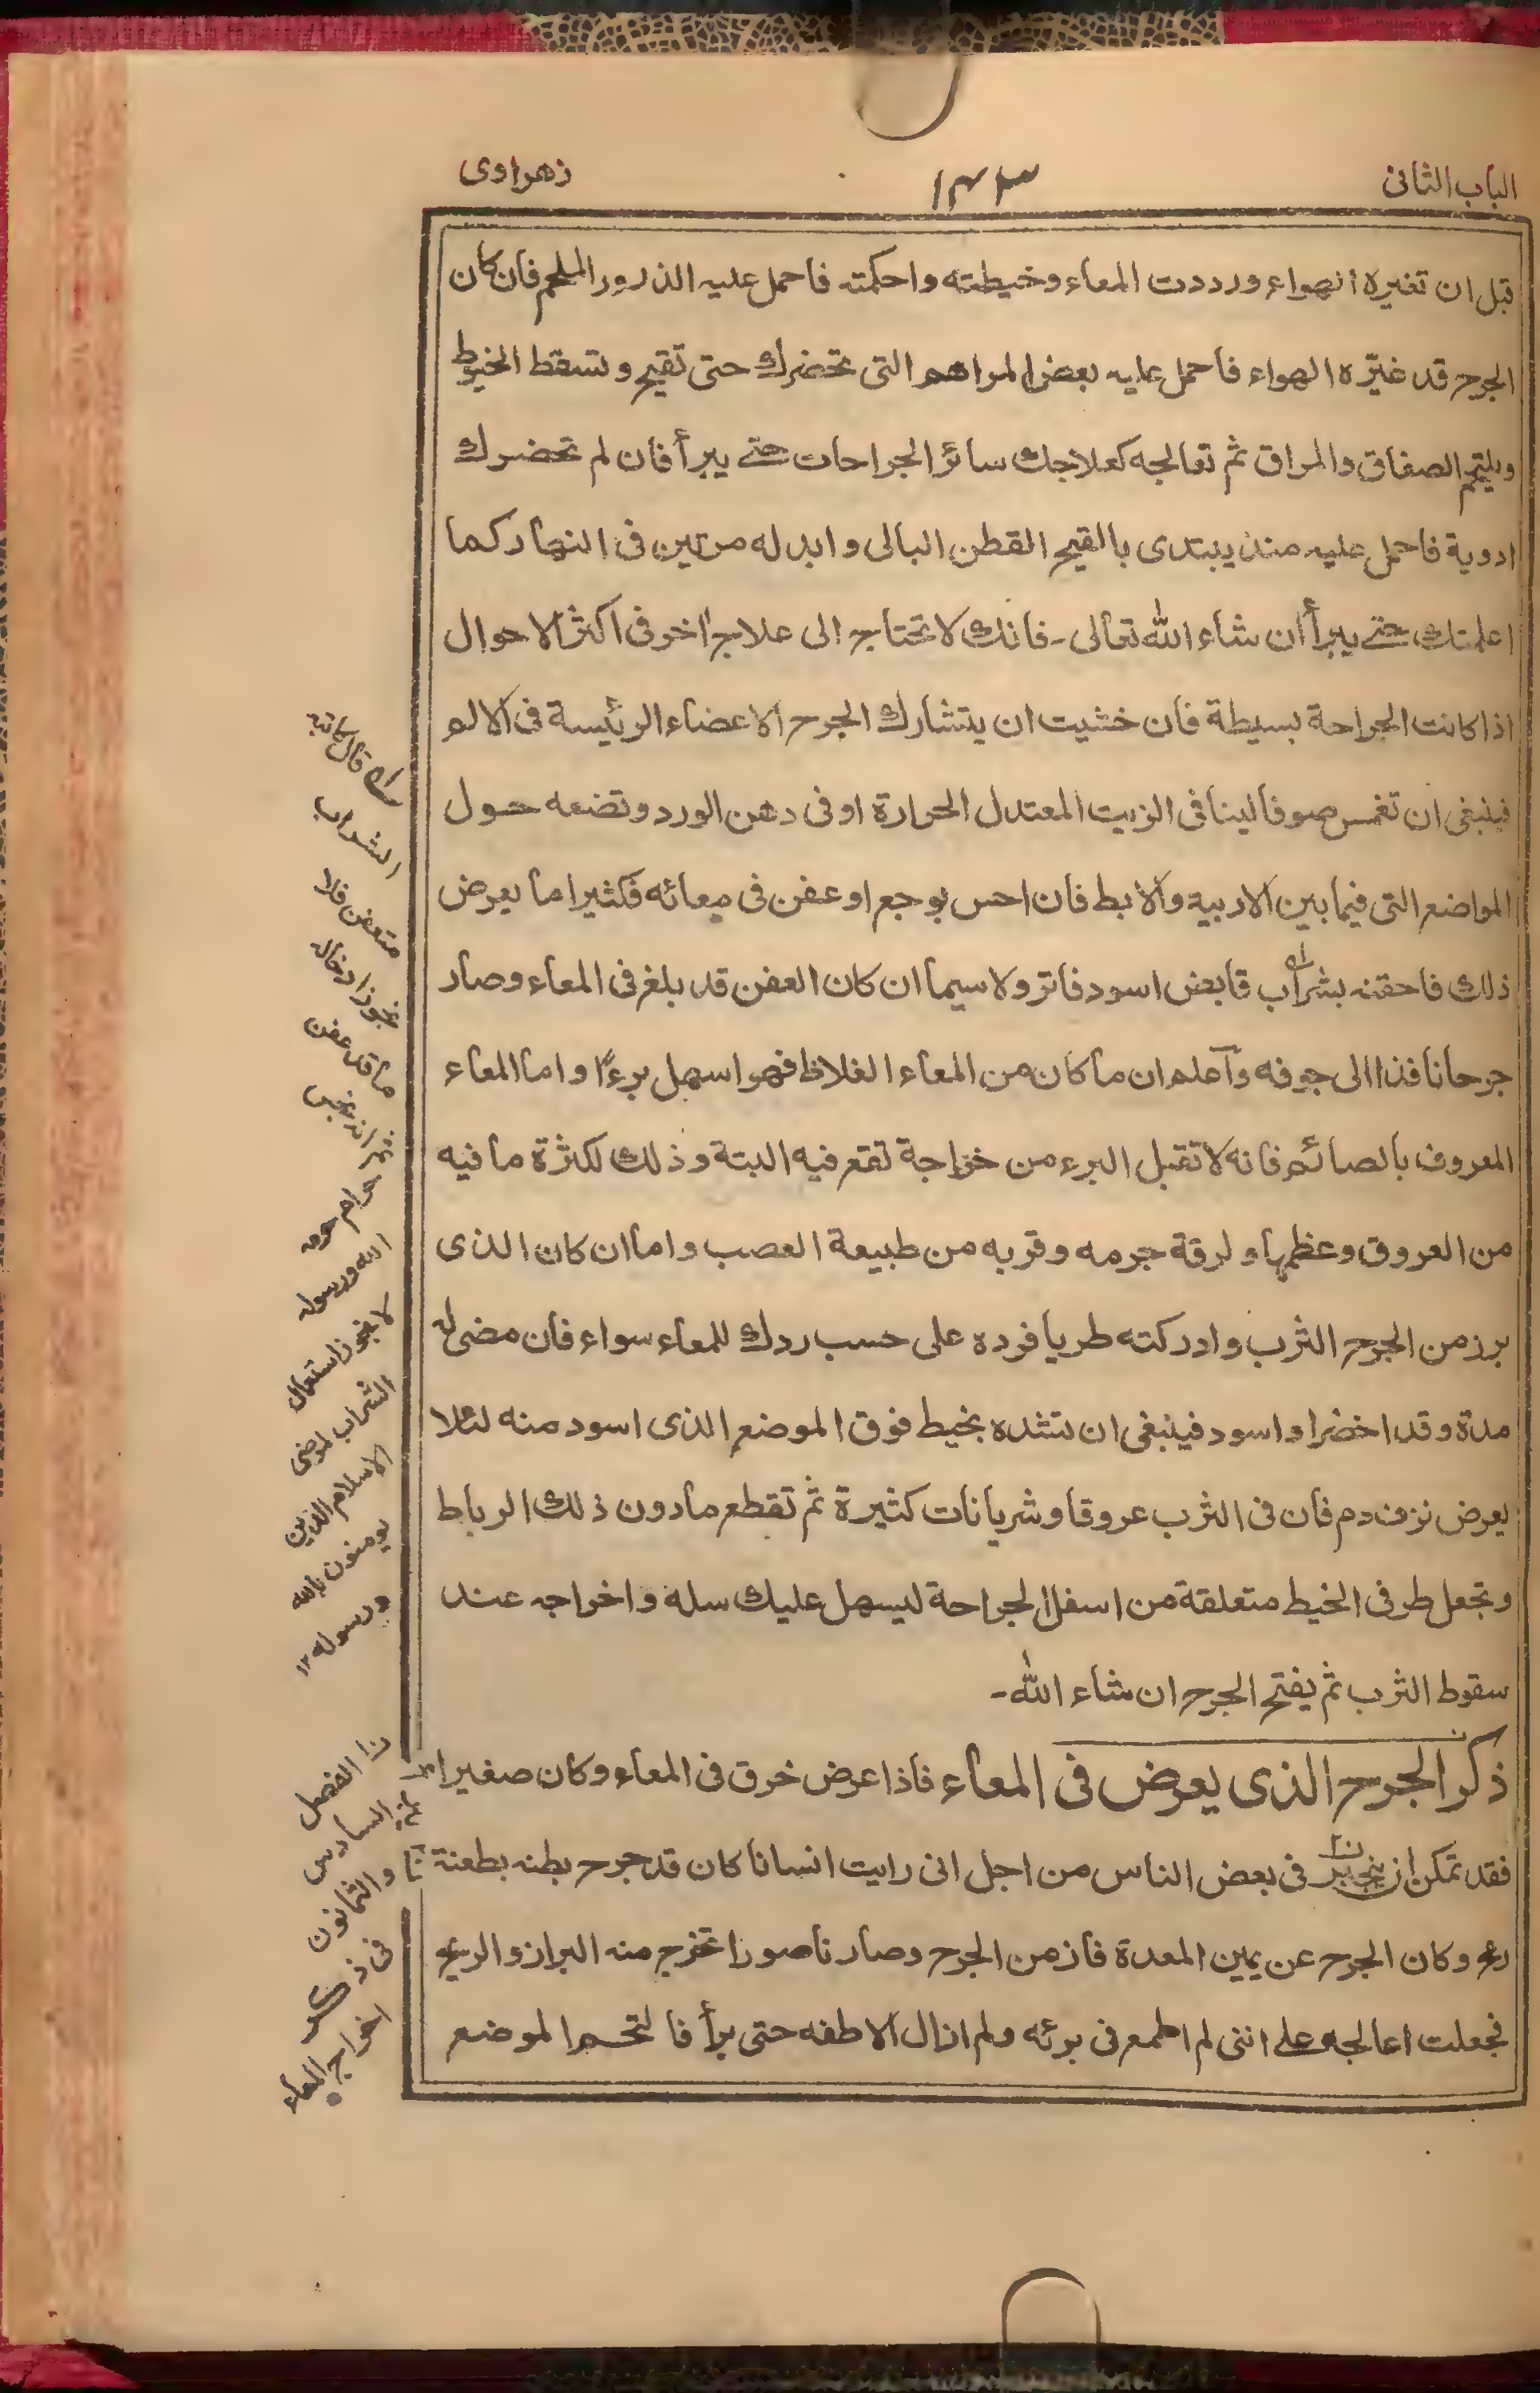 الباب الثانی
١٤٣
زهراوی
قبل ان تغیره الهواء ورددت المعاء وخیطته واحکمته فاحمل علیه الذرور الملحم فان کان
الجرح قد غیّره الهواء فاحمل علیه بعض المراهم التی تحضرك حتی تقیح وتسقط الخیوط
ویلتحم الصفاق والمراق ثم تعالجه کعلاجك سائر الجراحات حتے یبرأ فان لم تحضرك
ادویة فاحمل علیه منذ یبتدی بالقیح القطن البالی وابدله مرتین فی النهار کما
اعلمتك حتے یبرأ ان شاء الله تعالی - فانك لا تحتاج الی علاج اخر فی اکثر الاحوال
اذا کانت الجراحة بسیطة فان خشیت ان یتشارك الجرح الاعضاء الرئیسة فی الالم
فینبغی ان تغمس صوفا لینا فی الزیت المعتدل الحرارة او فی دهن الورد وتضعه حول
المواضع التی فیما بین الاربیه والابط فان احس بوجع او عفن فی معائه فکثیرا ما یعرض
ذلك فاحقنه بشراب قابض اسود فاتر ولا سیما ان کان العفن قد بلغ فی المعاء وصار
جرحا نافذا الی جوفه واعلم ان ما کان من المعاء الغلاظ فهو اسهل برءًا واما المعاء
المعروف بالصائم فانه لا تقبل البرء من خراجة تقع فیه البتة وذلك لکثرة ما فیه
من العروق وعظمها ولرقة جرمه وقربه من طبیعة العصب واما ان کان الذی
برز من الجرح الثرب وادرکته طریا فرده علی حسب ردك للمعاء سواء فان مضی له
مدة وقد اخضر او اسود فینبغی ان تشده بخیط فوق الموضع الذی اسود منه لئلا
یعرض نزف دم فان فی الثرب عروقا وشریانات کثیرة ثم تقطع ما دون ذلك الرباط
وتجعل طرفی الخیط متعلقة من اسفل الجراحة لیسهل علیك سله واخراجه عند
سقوط الثرب ثم یفتح الجرح ان شاء الله -
ذکر الجرح الذی یعرض فی المعاء فاذا عرض خرق فی المعاء وکان صغیرا
فقد تمکن ان ینجبر فی بعض الناس من اجل انی رایت انسانا کان قد جرح بطنه بطعنة
رمح وکان الجرح عن یمین المعدة فازمن الجرح وصار ناصورا تخرج منه البراز والریح
فجعلت اعالجه علے اننی لم اطمع فی برئه ولم ازال الاطفه حتی برأ فالتحم الموضع
قال کاتبه
الشراب
متعفن فلا
یجوز ادخاله
ما قد عفن
نجس
حرام حرمه
الله ورسوله
لا یجوز استعمال
الشراب لمرضی
الاسلام الذین
یومنون بالله
ورسوله ١٢
الفصل
السادس
والثمانون
فی ذکر
اخراج المعاء